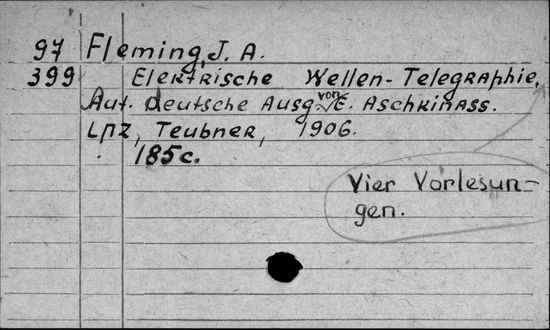 97 Fleming, J. A.
399 Elektrische Wellen-Telegraphie,
Aut. deutsche Ausg. von E. Aschkinass.
Lpz, Teubner, 1906.
185c.
Vier Vorlesun-
gen.